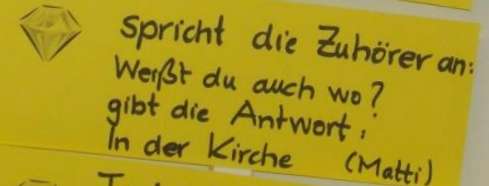 spricht die Zuhörer an:
Weißt du auch wo?
gibt die Antwort:
In der Kirche (Matti)